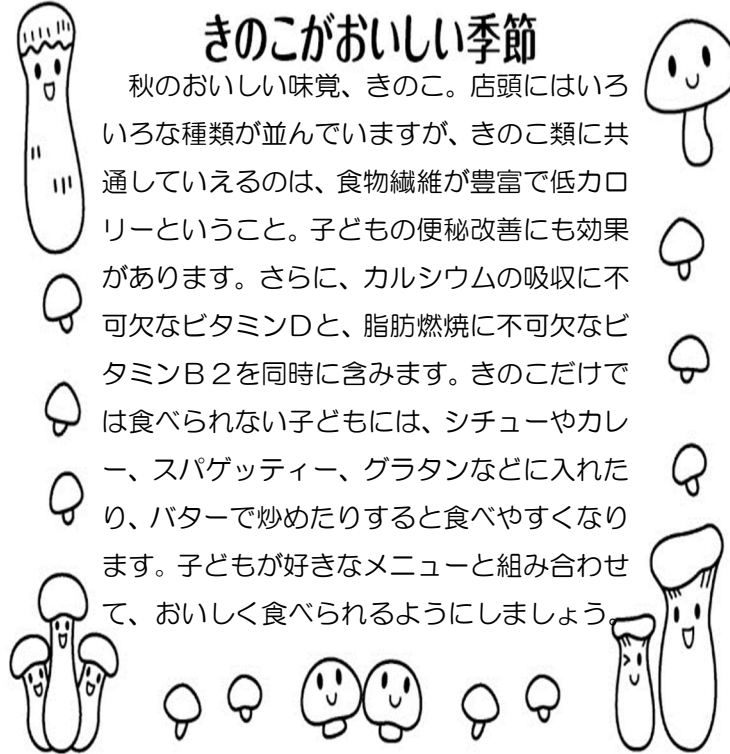 きのこがおいしい季節
　秋のおいしい味覚、きのこ。店頭にはいろ
いろな種類が並んでいますが、きのこ類に共
通していえるのは、食物繊維が豊富で低カロ
リーということ。子どもの便秘改善にも効果
があります。さらに、カルシウムの吸収に不
可欠なビタミンＤと、脂肪燃焼に不可欠なビ
タミンＢ２を同時に含みます。きのこだけで
は食べられない子どもには、シチューやカレ
ー、スパゲッティー、グラタンなどに入れた
り、バターで炒めたりすると食べやすくなり
ます。子どもが好きなメニューと組み合わせ
て、おいしく食べられるようにしましょう。